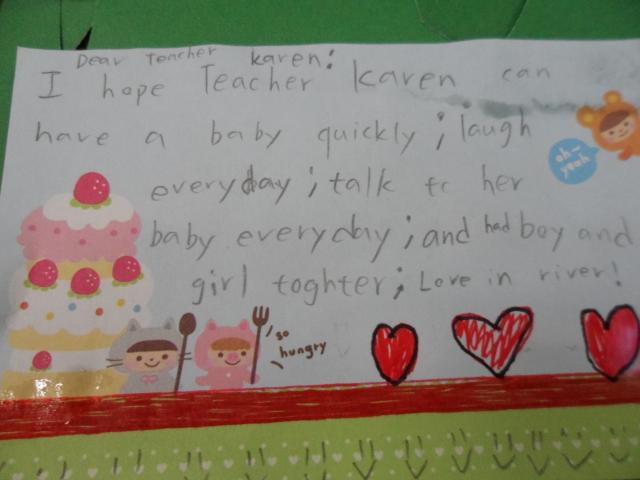 Dear Teacher karen:
I hope Teacher karen can
have a baby quickly; laugh
everyday; talk to her
baby everyday; and had boy and
girl toghter; Love in river!
oh~
yeah
so
hungry